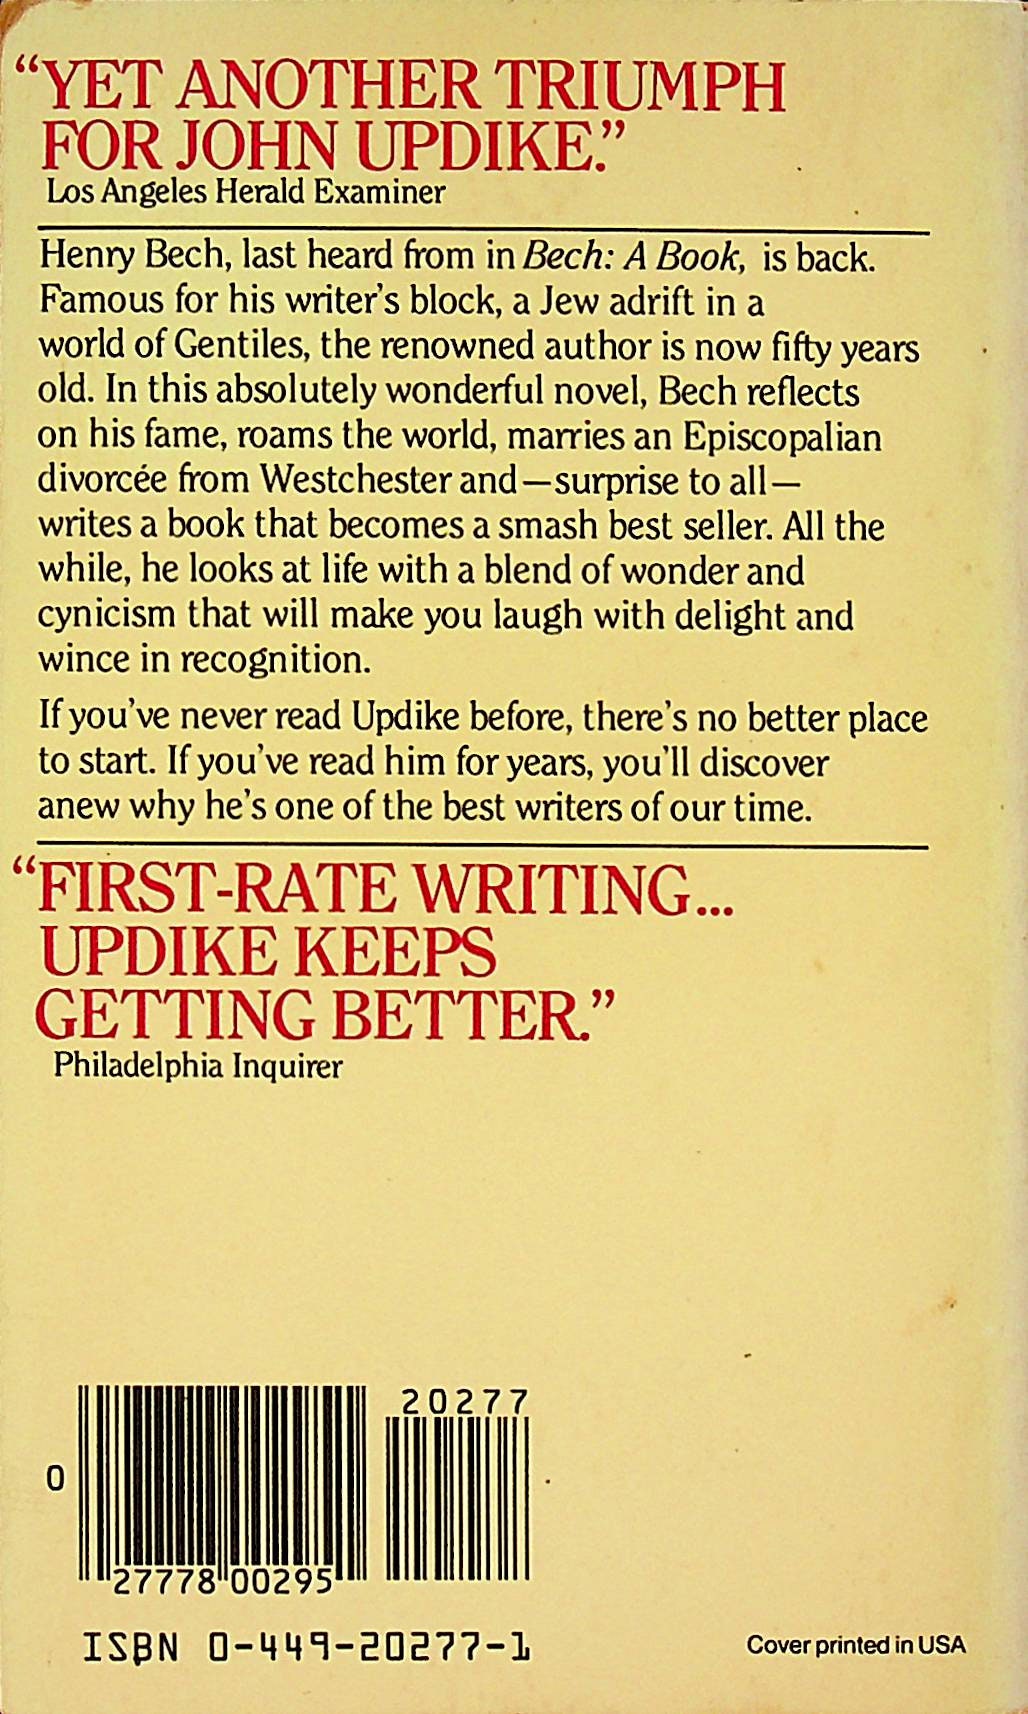 “YET ANOTHER TRIUMPH
FOR JOHN UPDIKE.”
Los Angeles Herald Examiner
Henry Bech, last heard from in Bech: A Book, is back.
Famous for his writer's block, a Jew adrift in a
world of Gentiles, the renowned author is now fifty years
old. In this absolutely wonderful novel, Bech reflects
on his fame, roams the world, marries an Episcopalian
divorcée from Westchester and—surprise to all—
writes a book that becomes a smash best seller. All the
while, he looks at life with a blend of wonder and
cynicism that will make you laugh with delight and
wince in recognition.
If you've never read Updike before, there's no better place
to start. If you've read him for years, you'll discover
anew why he's one of the best writers of our time.
“FIRST-RATE WRITING...
UPDIKE KEEPS
GETTING BETTER.”
Philadelphia Inquirer
20277
0
27778 00295
ISBN 0-449-20277-1
Cover printed in USA